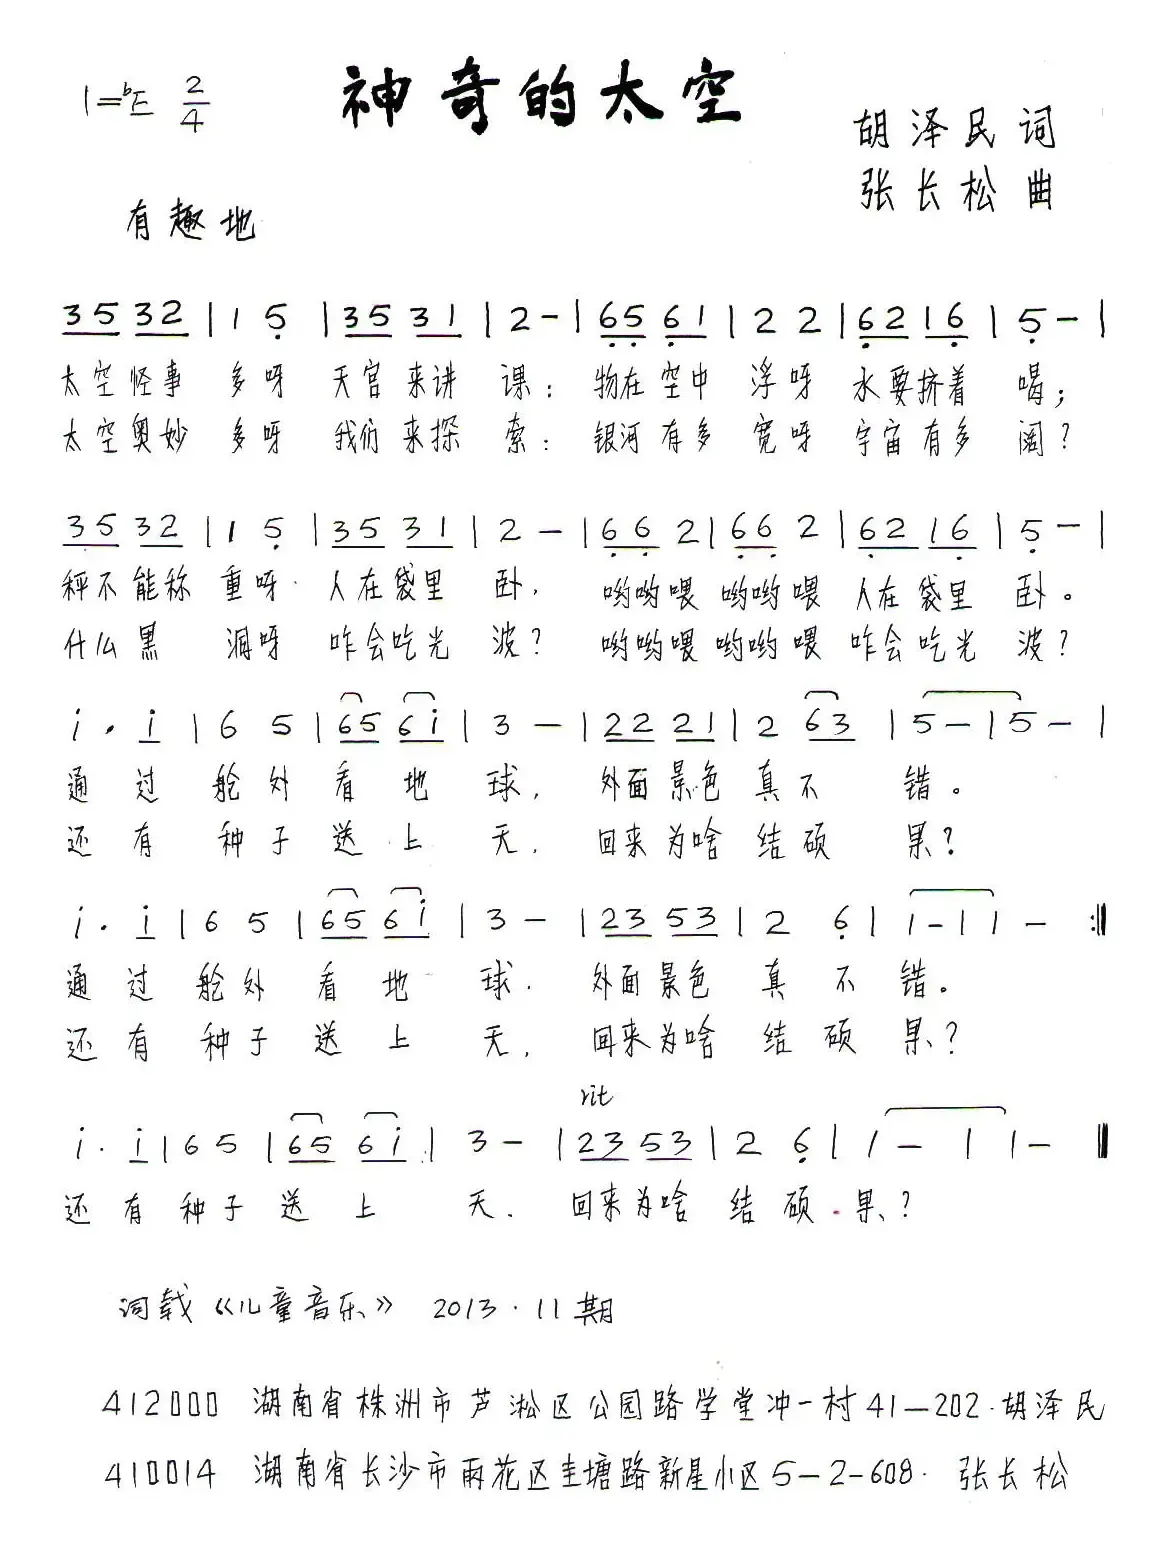 1=ᵇE 2/4 神奇的太空
胡泽民词
张长松曲
有趣地
3532 | 1 5̣ | 3532 31 | 2 - | 6̣5̣ 6̣1 | 2 2 | 6̣2 16̣ | 5̣ - |
太空怪事 多呀 天宫来讲 课: 物在空中 浮呀 水要挤着 喝;
太空奥妙 多呀 我们来探 索: 银河有多 宽呀 宇宙有多 阔?
3532 | 1 5̣ | 3531 | 2 - | 6̣6̣ 2 | 6̣6̣ 2 | 6̣2 16̣ | 5̣ - |
秤不能称 重呀. 人在袋里 卧, 哟哟喂 哟哟喂 人在袋里 卧。
什么黑 洞呀 咋会吃光 波? 哟哟喂 哟哟喂 咋会吃光 波?
i . i | 6 5 | 65 6i | 3 - | 22 21 | 2 63 | 5 - | 5 - |
通过 舱外 看地 球, 外面景色 真不 错。
还有 种子 送上 天, 回来为啥 结硕 果?
i . i | 6 5 | 65 6i | 3 - | 23 53 | 2 6̣ | 1 - | 1 - :‖
通过 舱外 看地 球. 外面景色 真不 错。
还有 种子 送上 天, 回来为啥 结硕 果?
rit
i . i | 6 5 | 65 6i | 3 - | 23 53 | 2 6̣ | 1 - | 1 - ‖
还有 种子 送上 天. 回来为啥 结硕. 果?
词载《儿童音乐》 2013.11期
412000 湖南省株洲市芦淞区公园路学堂冲一村41—202.胡泽民
410014 湖南省长沙市雨花区圭塘路新星小区5—2—608. 张长松